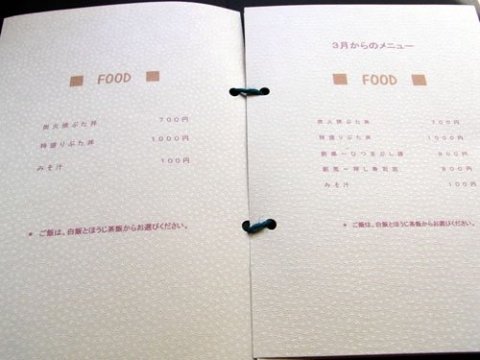 ■ FOOD ■
炭火焼ぶた丼 700円
特盛りぶた丼 1000円
みそ汁 100円
* ご飯は、白飯とほうじ茶飯からお選びください。
3月からのメニュー
■ FOOD ■
炭火焼ぶた丼 700円
特盛りぶた丼 1000円
新風ーひつまぶし豚
新風ー押し寿司
みそ汁 100円
* ご飯は、白飯とほうじ茶飯からお選びください。